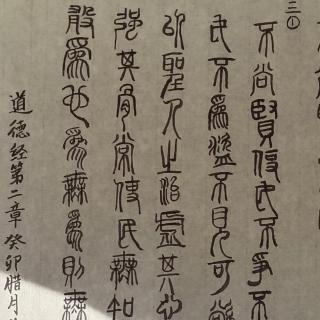 三①
不尚賢使民不爭不
民不爲盜不見可欲
以聖人之治虛其心
强其骨常使民無知
敢爲也爲無爲則無
道德经第二章癸卯腊月